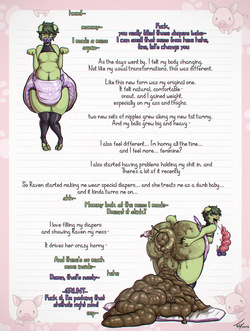 heeel~
mommy~
I made a mess
again~
Fuck,
you really filled those diapers babe~
I can smell that same from here haha,
fine, let's change you
As the days went by, I felt my body changing.
Not like my usual transformations, this was different.
Like this new form was my original one.
It felt natural, comfortable
snout, and I gained weight,
especially on my ass and thighs.
two new sets of nipples grew along my new fat tummy.
And my balls grew big and heavy~
I also feel different... I'm horny all the time...
and I feel more... feminine?
I also started having problems holding my shit in. and
There's a lot of it recently
So Raven started making me wear special diapers... and she treats me as a dumb baby...
and it kinda turns me on...
ahh~
Mommy look at the mess I made~
Doesn't it stink?
I love filling my diapers
and showing Raven my mess~
It drives her crazy horny~
And there's so much
more inside~
hehe
Damn, that's nasty~
~GRUNT~
Fuck it, I'm putting that
shithole right now!